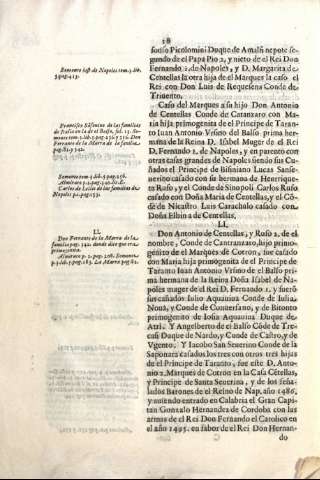 18
fonso Picolomini Duque de Amalfi nepote segundo
de el Papa Pio 2, y nieto de el Rei Don
Fernando 1. de Napoles, y D. Margarita de
Centellas la otra hija de el Marques la casò el
Rei con Don Luis de Requesens Conde de
Triuento.
Casò del Marques a su hijo Don Antonio
de Centellas Conde de Catanzaro con Maria
hija primogenita de el Principe de Taranto
Iuan Antonio Vrsino del Balso prima hermana
de la Reina D. Isabel Muger de el Rei
D. Fernando 1. de Napoles, y en parentco con
otras casas grandes de Napoles siendo sus Cuñados
el Principe de Bisiniano Lucas Sanseuerino
casado con su hermana de Henrriqueta
Rufo, y el Conde de Sinopoli Carlos Rufo
casado con Doña Maria de Centellas, y el Cõde
de Nicastro Luis Caracholo casado con
Doña Elbin a de Centellas.
LI.
Don Antonio de Centellas, y Rufo 2. de el
nombre, Conde de Cantranzaro, hijo primogenito
de el Marques de Cotron, fue casado
con Maria hija primogenita de el Principe de
Taranto Iuan Antonio Vrsino de el Balso prima
hermana de la Reina Doña Isabel de Napoles
muger de el Rei D. Fernando 1. y fueron
sus casados Iulio Aquauiua Conde de Iulia,
Nouà, y Conde de Conuersano, y de Bitonto
primogenito de Iosia Aquauiua Duque de
Atri. Y Angelberto de el Balso Cõde de Trecasi
Duque de Nardo, y Conde de Castro, y de
Vgento, Y Iacobo San Seuerino Conde de la
Saponara casados los tres con otros tres hijas
de el Principe de Taranto, fue este D. Antonio
2. Marques de Cotron en la Casa Cẽtellas,
y Principe de Santa Seuerina, y de los señalados
Barones de el Reino de Nap. año 1486.
y auiendo entrado en Calabria el Gran Capitan
Gonzalo Hernandez de Cordoba con las
armas de el Rei Don Fernando el Catolico en
el año 1495. en fabor de el Rei Don Hernando
Bonomo hist. de Napoles tom. 3. lib.
3. pag. 413.
Francisco Sãsouino de las familias
de Italia en la de el Balso, fol. 15.
tom. 2. lib. 3. pag. 236. y 256. Don
Ferrante de la Marra de las familias
pag. 82. y 342.
Almirato p. 2. pag. 40. de
Carlos de Lelis de las familias de
Napoles p. 1. pag. 153.
LI.
Don Ferrante de la Marra de las
familias pag. 342. donde dice que era
primogenita.
Almirato p. 2. pag. 208.